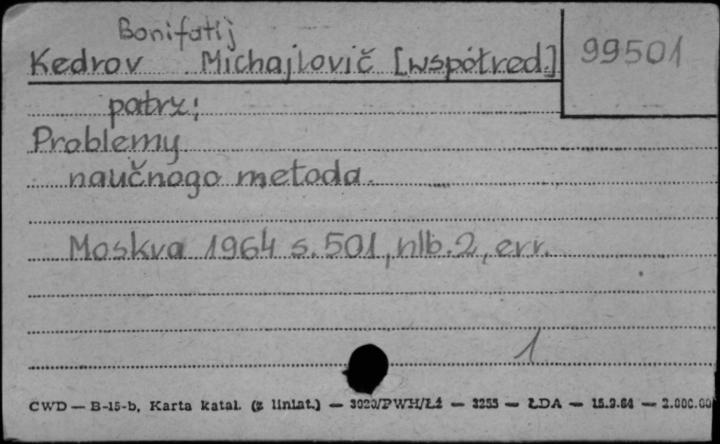 Bonifatij
Kedrov Michajlovič [współred.] 99501
patrz:
Problemy
naučnogo metoda.
Moskva 1964 s. 501, nlb. 2, err.
1
CWD — B-15-b, Karta katal. (z liniat.) — 3020/PWH/Łź — 3255 — ŁDA — 15.9.64 — 2.000.00